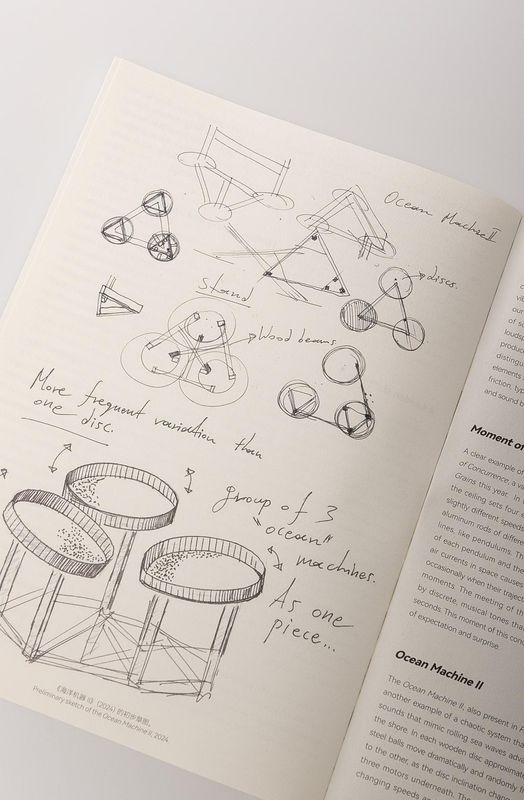 Ocean Machine II
discs.
Stand
Wood beams
More frequent variation than
one disc.
group of 3
"ocean"
machines.
As one
piece...
《海洋机器 II》（2024）的初步草图。
Preliminary sketch of the Ocean Machine II, 2024
Moment of
A clear example of
of Concurrence, a
Grains this year. In
the ceiling sets four
slightly different speed
aluminum rods of differen
lines, like pendulums. Th
of each pendulum and the
air currents in space cause
occasionally when their traject
moments. The meeting of t
by discrete, musical tones tha
seconds. This moment of this conc
of expectation and surprise.
Ocean Machine II
The Ocean Machine II, also present in
another example of a chaotic system tha
sounds that mimic rolling sea waves adv
the shore. In each wooden disc approximate
steel balls move dramatically and randomly f
to the other, as the disc inclination chan
three motors underneath. The
changing speeds a